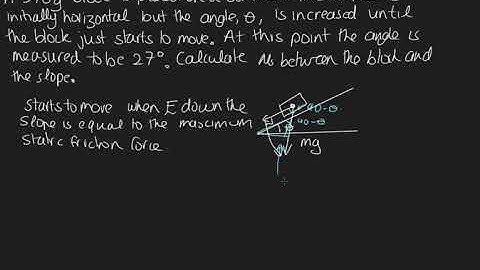 initially horizontal but the angle, θ, is increased until
the block just starts to move. At this point the angle is
measured to be 27°. Calculate μs between the block and
the slope.
starts to move when F down the
slope is equal to the maximum
static friction force
90-θ
90-θ
θ
mg